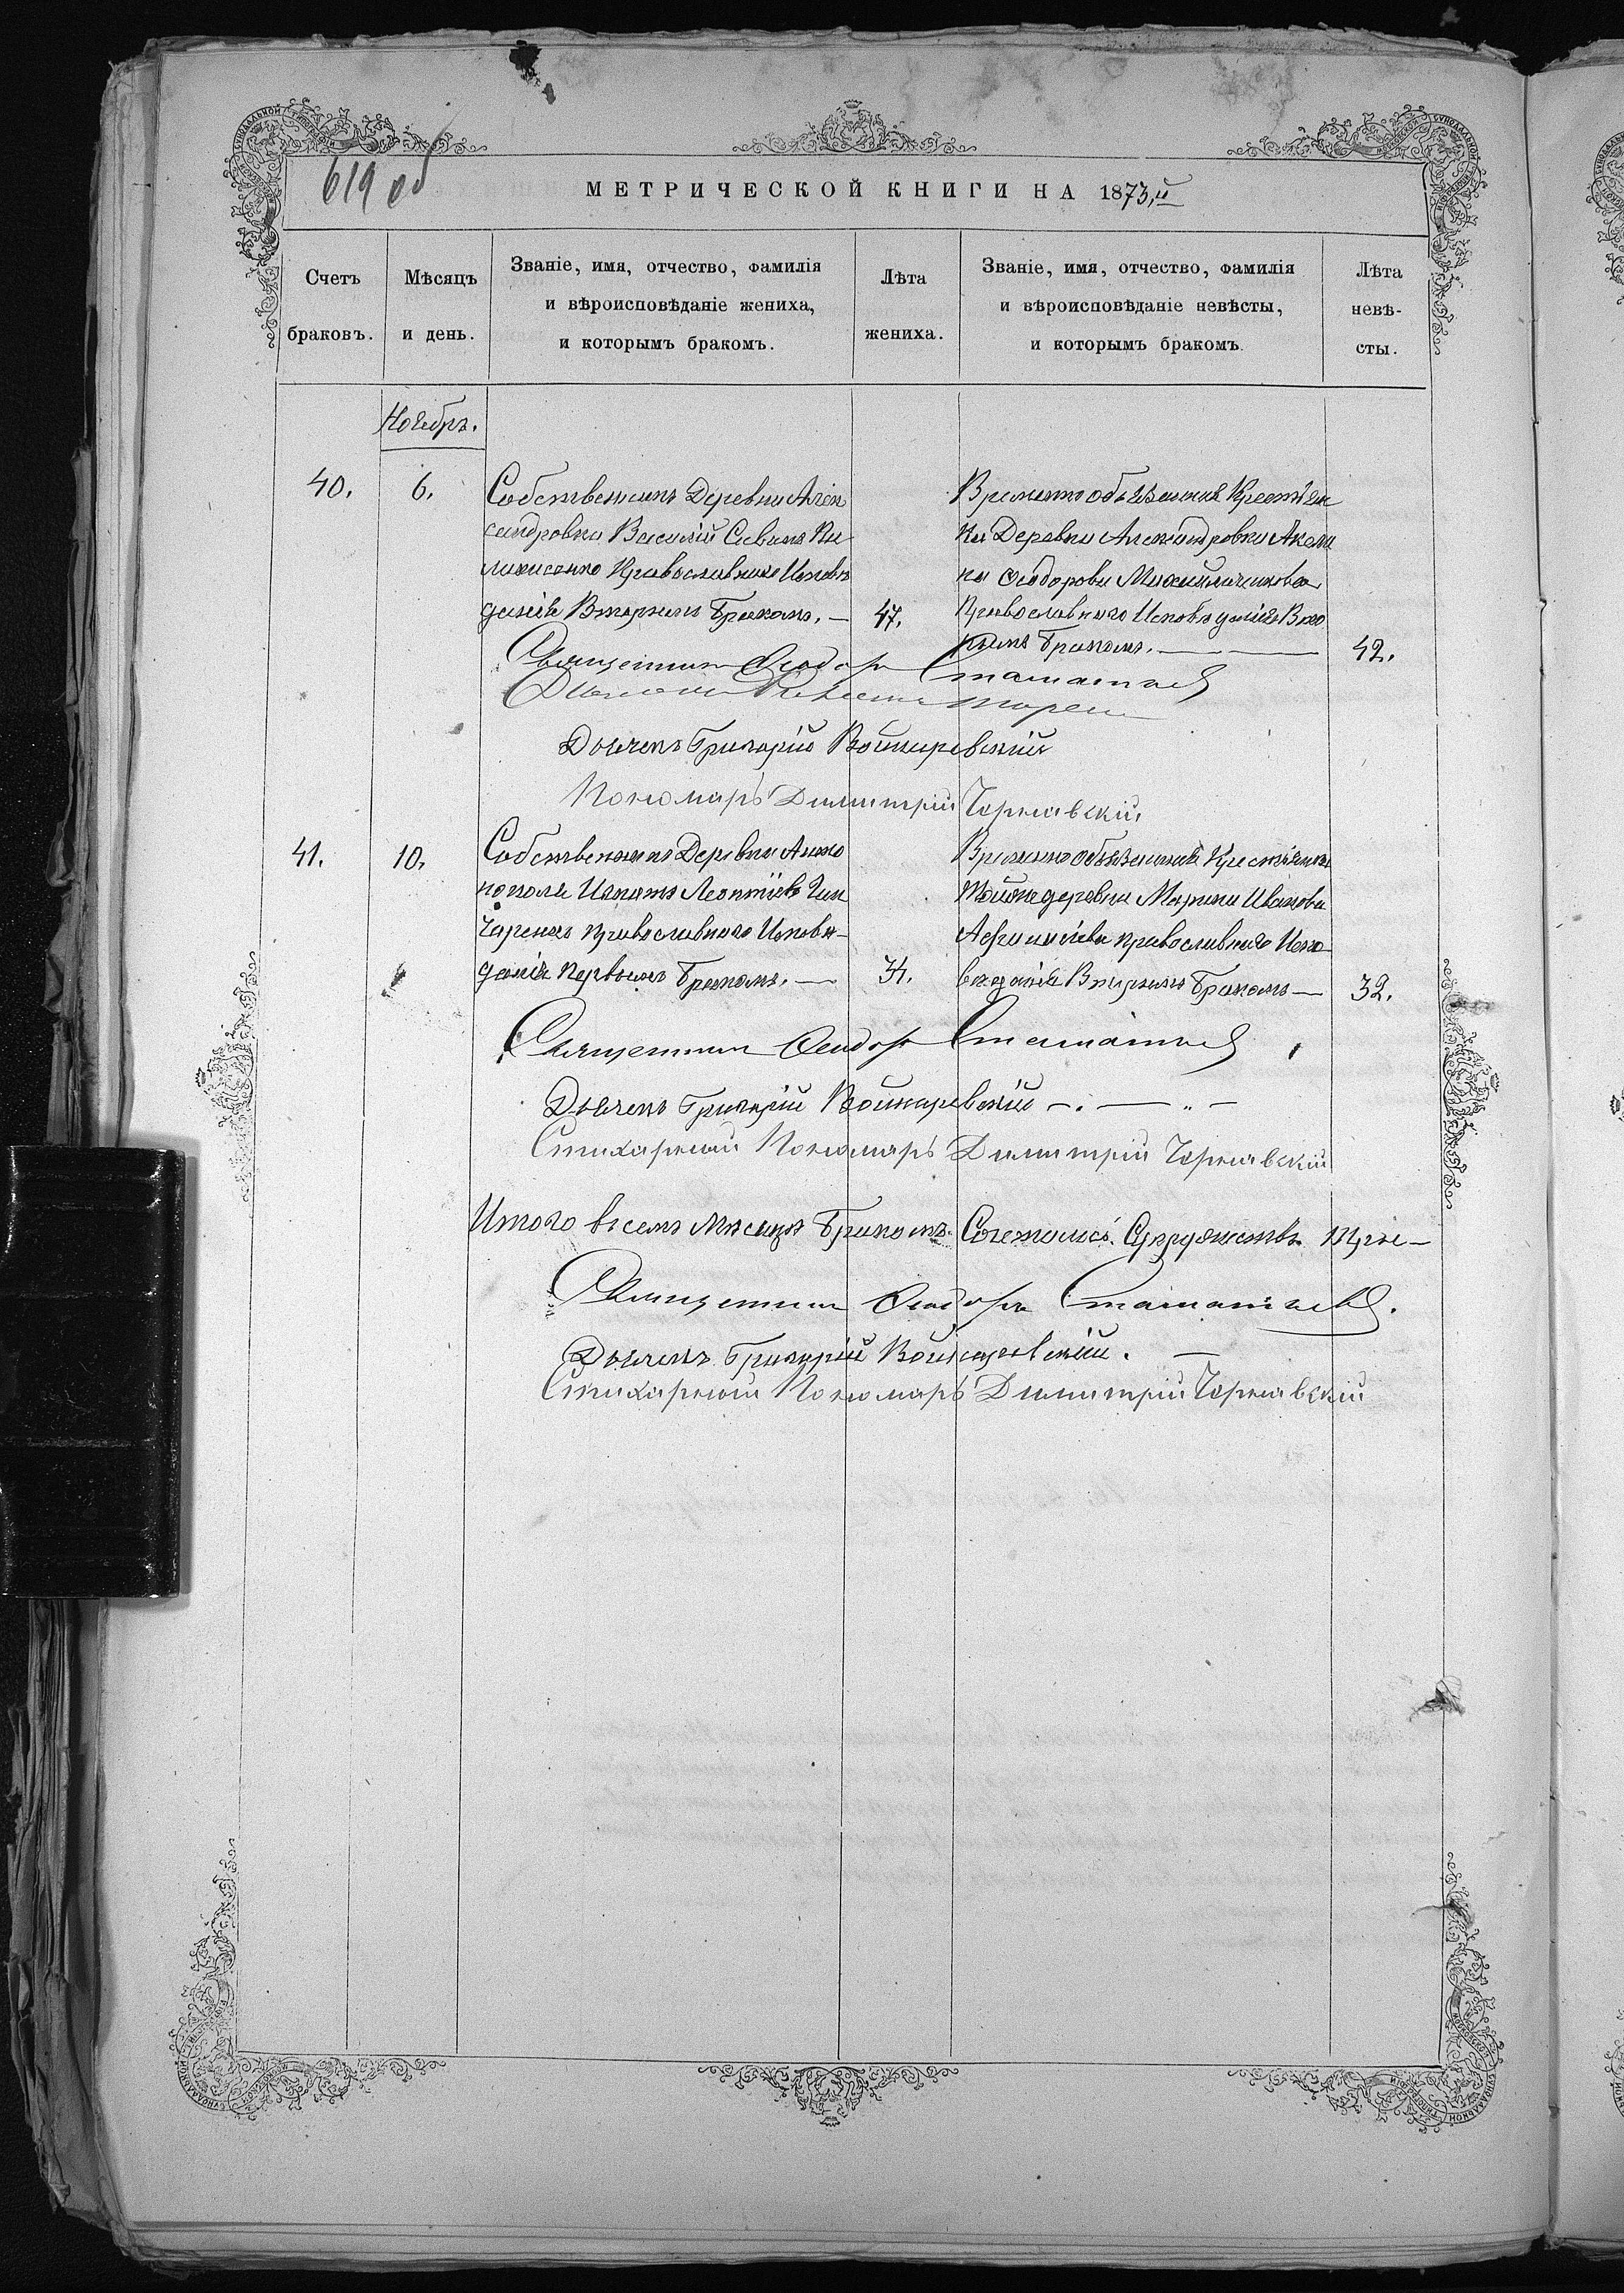 619 об
МЕТРИЧЕСКОЙ КНИГИ НА 1873,й
Счетъ браковъ.
Мѣсяцъ и день.
Званіе, имя, отчество, фамилія
и вѣроисповѣданіе жениха,
и которымъ бракомъ.
Лѣта жениха.
Званіе, имя, отчество, фамилія
и вѣроисповѣданіе невѣсты,
и которымъ бракомъ
Лѣта невѣ-
сты.
Ноябрь.
40.
6.
Собственникъ Деревни Алек
сандровки Василій Савинъ
Православнаго Исповѣ
данія Вторымъ Бракомъ. —
47.
Временно обязанная Крестьян
ка Деревни Александровки Акели
на Ѳеодорова
Православнаго Исповѣданія Вто
рымъ Бракомъ. —
42.
Священникъ Ѳеодоръ Стаматьевъ
Дьячекъ Григорій Войцеревскій
Пономарь Димитрій Чернявскій
41.
10.
Собственникъ Деревни Анно
поля Игнатъ Леонтіевъ Гон
чаренко православнаго Исповѣ-
данія первымъ Бракомъ. —
34.
Временно обязанная Крестьянка
Тойже деревни Марина Иванова
православнаго Испо-
вѣданія Вторымъ Бракомъ —
32.
Священникъ Ѳеодоръ Стаматьевъ
Дьячекъ Григорій Войцеревскій —. — „ —
Стихарный Пономарь Димитрій Чернявскій
Итого въ семъ мѣсяцѣ Бракомъ Сочеталось Супружествъ три —
Священникъ Ѳеодоръ Стаматьевъ.
Дьячекъ Григорій Войцеревскій. —
Стихарный Пономарь Димитрій Чернявскій